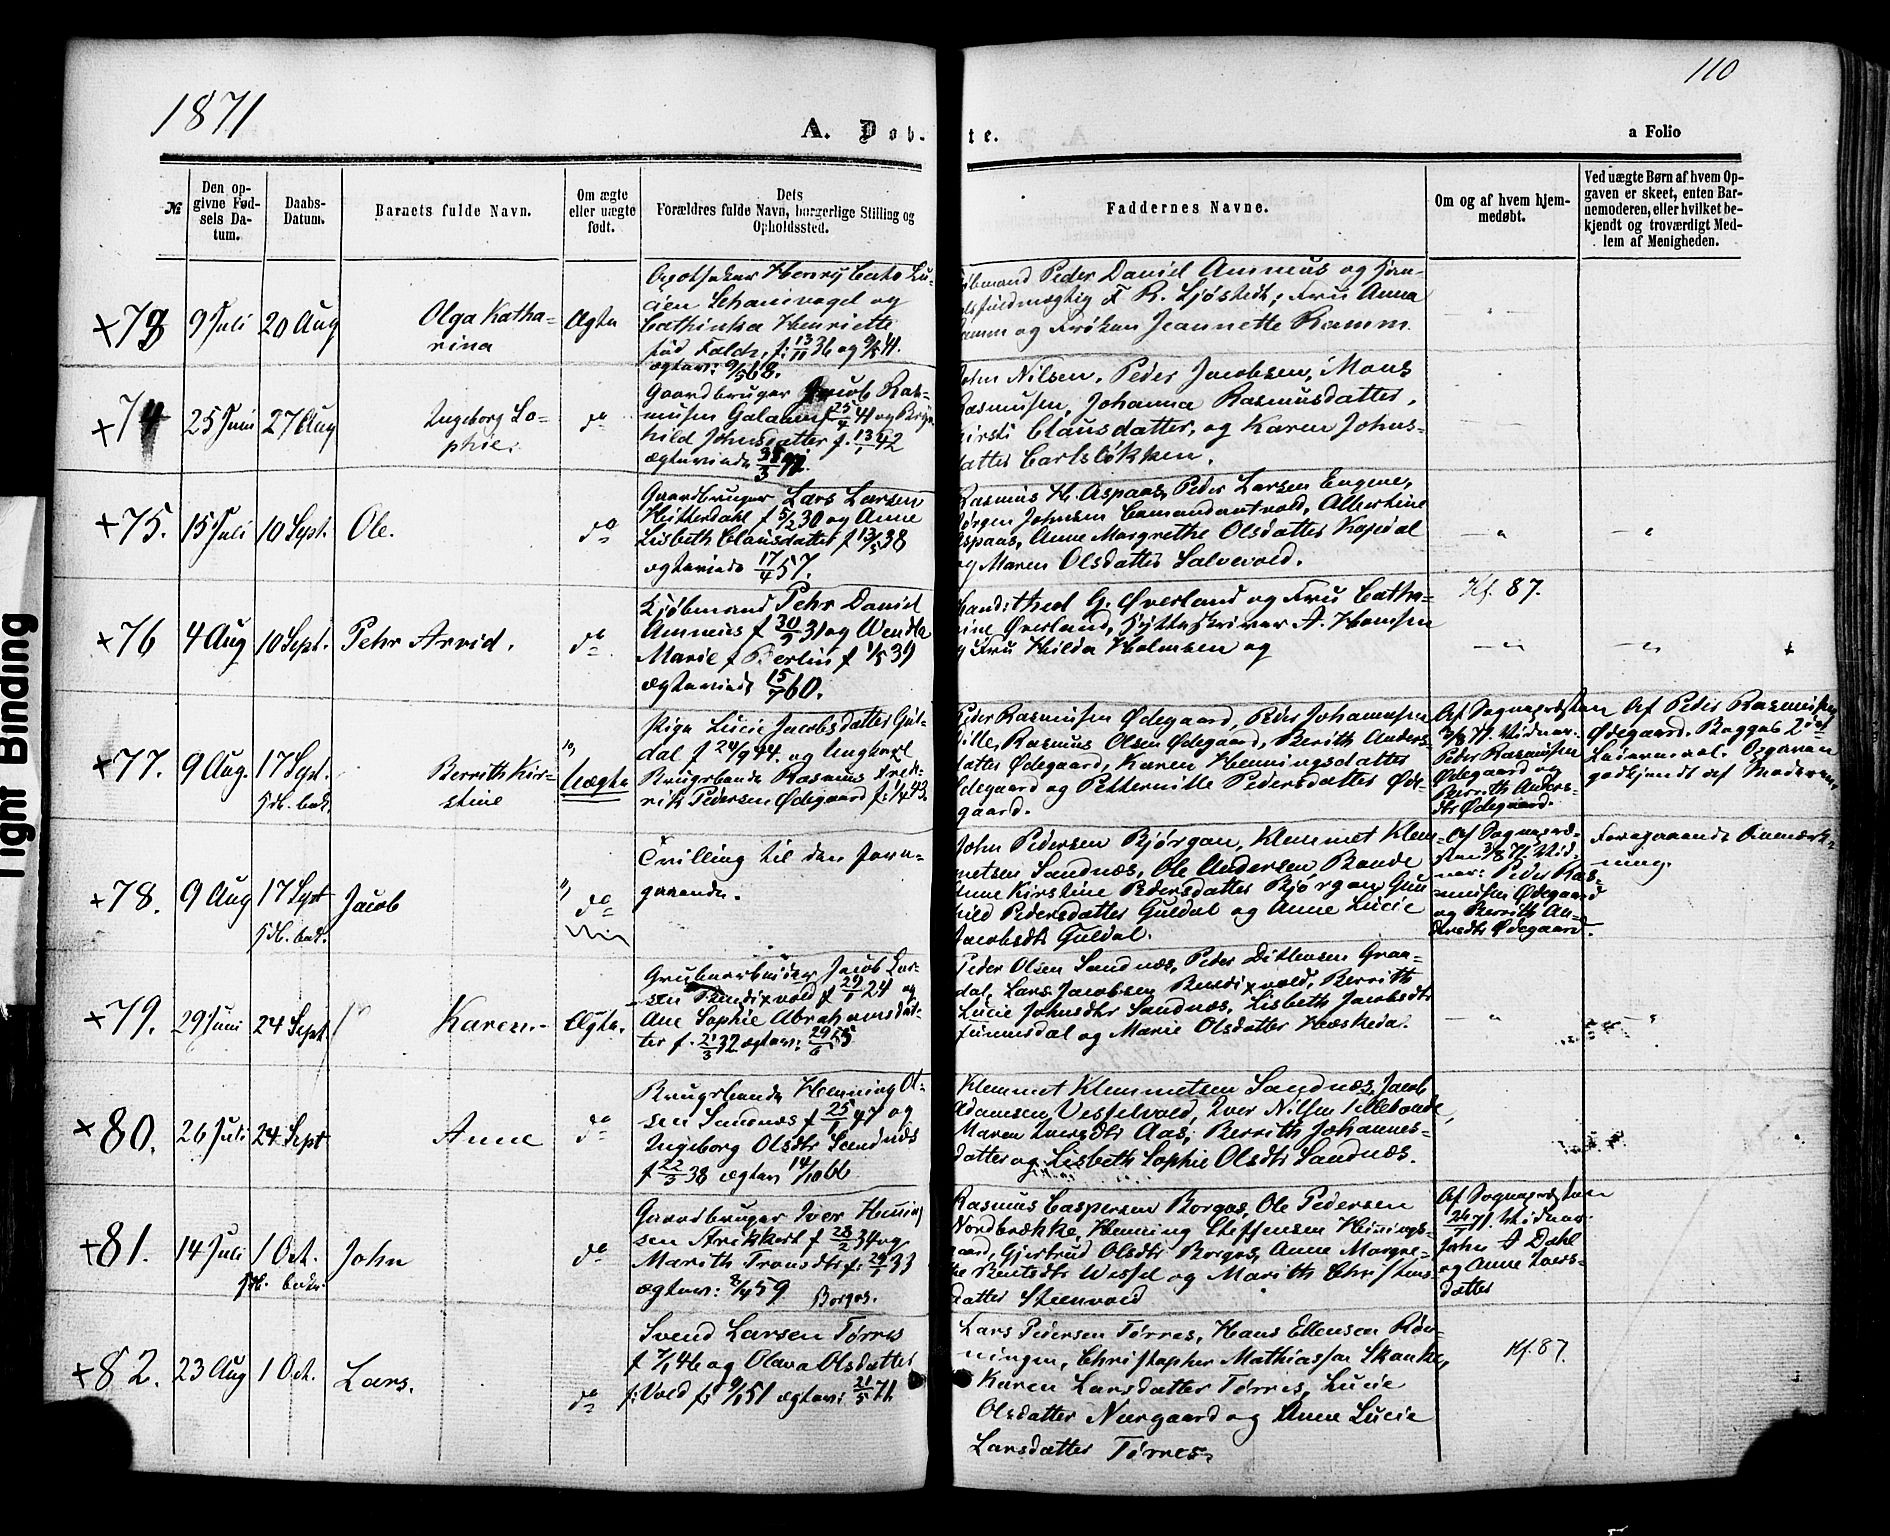 1871
110
A. Døb-
te.
a Folio
№
Den op-
givne Fød-
sels Da-
tum.
Daabs-
Datum.
Barnets fulde Navn.
Om ægte
eller uægte
født.
Dets
Forældres fulde Navn, borgerlige Stilling og
Opholdssted.
Faddernes Navne.
Om og af hvem hjem-
medøbt.
Ved uægte Børn af hvem Op-
gaven er skeet, enten Bar-
nemoderen, eller hvilket be-
kjendt og troværdigt Med-
lem af Menigheden.
+73 9 Juli 20 Aug
Olga Katha-
rina
Ægte
Apotheker Henry Cato Lu-
cien Scharnvogel og
Cathinka Henriette
født f: 13/11 36 og 9/5 41.
ægtev: 9/5 68.
Peder Daniel Ammus og
F. R. Sjöstedt; Fru Anna
og Frøken Jeannette Ramm.
+74 25 Juni 27 Aug
Ingeborg So-
phie.
do
Gaardbruger Jacob Ras-
musen Galaaen f 25/4 41 og
hild Johnsdatter f. 13/1 42
ægteviede
John Nilsen, Peder Jacobsen, Mons
Rasmusen, Johanna Rasmusdatter,
Kirsti Clausdatter, og Karen Johns-
datter Carlsløkken.
+75. 15 Juli 10 Sept. Ole.
do
Gaardbruger Lars Larsen
Hitterdahl f 5/2 30 og Anne
Lisbeth Clausdatter f 13/5 38
ægteviede 17/4 57.
Rasmus H. Aspaas, Peder Larsen Engene,
Jørgen Johnsen Comandantvold, Albertine
Aspaas, Anne Margrethe Olsdatter
og Maren Olsdatter Salvevold.
+76 4 Aug 10 Sept. Pehr Arvid.
do
Kjøbmand Pehr Daniel
Ammus f 31 og Wendla
Marie f Berlin f 1/5 39
ægteviede 15/7 60.
Kf. 87.
G. Øverland og Fru Catha-
rine Øverland, Hytteskriver A. Hansen
og Fru Hilda Holmsen og
+77. 9 Aug. 17 Sept.
Berrith Kir-
stine
Uægte
Pige Lucie Jacobsdatter Gul-
dal f 24/9 44. og Ungkarl
Brugsbonde Rasmus Fred-
rik Pedersen Ødegaard f: 1/4 43.
Peder Rasmussen Ødegaard, Peder Johannesen
Rasmus Olsen Ødegaard, Berith Anders-
datter Ødegaard, Karen Henningsdatter
Ødegaard og Petternille Pedersdatter Øde-
gaard.
Af Sognepræsten
3/8 71. Vidner
Peder Rasmusen
Ødegaard og
Berith Anders-
dtr Ødegaard.
Af Peder Rasmusen
Ødegaard. Begges 2det
Leiermaal. Opgaven
godkjendt af Moderen.
+78. 9 Aug 17 Sept Jacob
do
Tvilling til den fore-
gaaende.
John Pedersen Bjørgan, Klemmet Klem-
metsen Sandnæs, Ole Andersen, Bonde
Anne Kirstine Pedersdatter Bjørgan Gun-
hild Pedersdatter Guldal og Anne Lucie
Jacobsdtr Guldal.
Af Sognepræ-
sten 3/8 71. Vid-
ner: Peder Ras-
musen Ødegaard
og Berrith An-
dersdtr Ødegaard.
Foregaaende Anmærk-
ning.
+79. 29 Juni 24 Sept
Karen.
Ægte.
Grubearbeider Jacob Lar-
sen Bendixvold f 29/1 24 og
Ane Sophie Abrahamsdat-
ter f. 21/3 32 ægtev: 29/6 55
Peder Olsen Sandnæs, Peder Ditlevsen Graa-
dal, Lars Jacobsen Bendixvold, Berrith
Lucie Johnsdtr Sandnæs, Lisbeth Jacobsdtr
Funnesdal og Marie Olsdatter Hæskedal.
+80. 26 Juli 24. Sept
Anne
do
Brugsbonde Henning Ol-
sen Sandnæs f 25/1 47 og
Ingeborg Olsdtr Sandnæs
f 22/3 38 ægtev 14/10 66
Klemmet Klemmetsen Sandnæs, Jacob
Adamsen Vesselvold, Iver Nilsen Lillebonde,
Maren Iversdtr Aas, Berrith Johannes-
datter og Lisbeth Sophie Olsdtr Sandnæs.
+81. 14 Juli 1 Oct. John
do
Gaardbruger Iver Hening-
sen f 28/2 34 og
Marith Tronsdtr f: 29/1 33
ægtev: 8/4 59
Borgos.
Rasmus Caspersen Borgos, Ole Pedersen
Nordbrække, Henning Steffensen Hennings-
gaard, Gjertrud Olsdtr Borgos, Anne Margre-
the Bentsdtr Wessel og Marith Christens-
datter Steenvold
Af Sognepræsten
26/7 71. Vidner
John J. Dahl
og Anne Ivers-
datter
+82. 23 Aug 1 Oct. Lars.
do
Svend Larsen Tørres
f 7/1 46 og Olava Olsdatter
f: Vold f: 9/1 51 ægtev: 21/5 71.
Lars Pedersen Tørres, Hans Ellensen Røn-
ningen, Christopher Mathiassen Skanke,
Karen Larsdatter Tørres, Lucie
Olsdatter Nærgaard og Anne Lucie
Larsdatter Tørres.
Kf 87.
Tight Binding